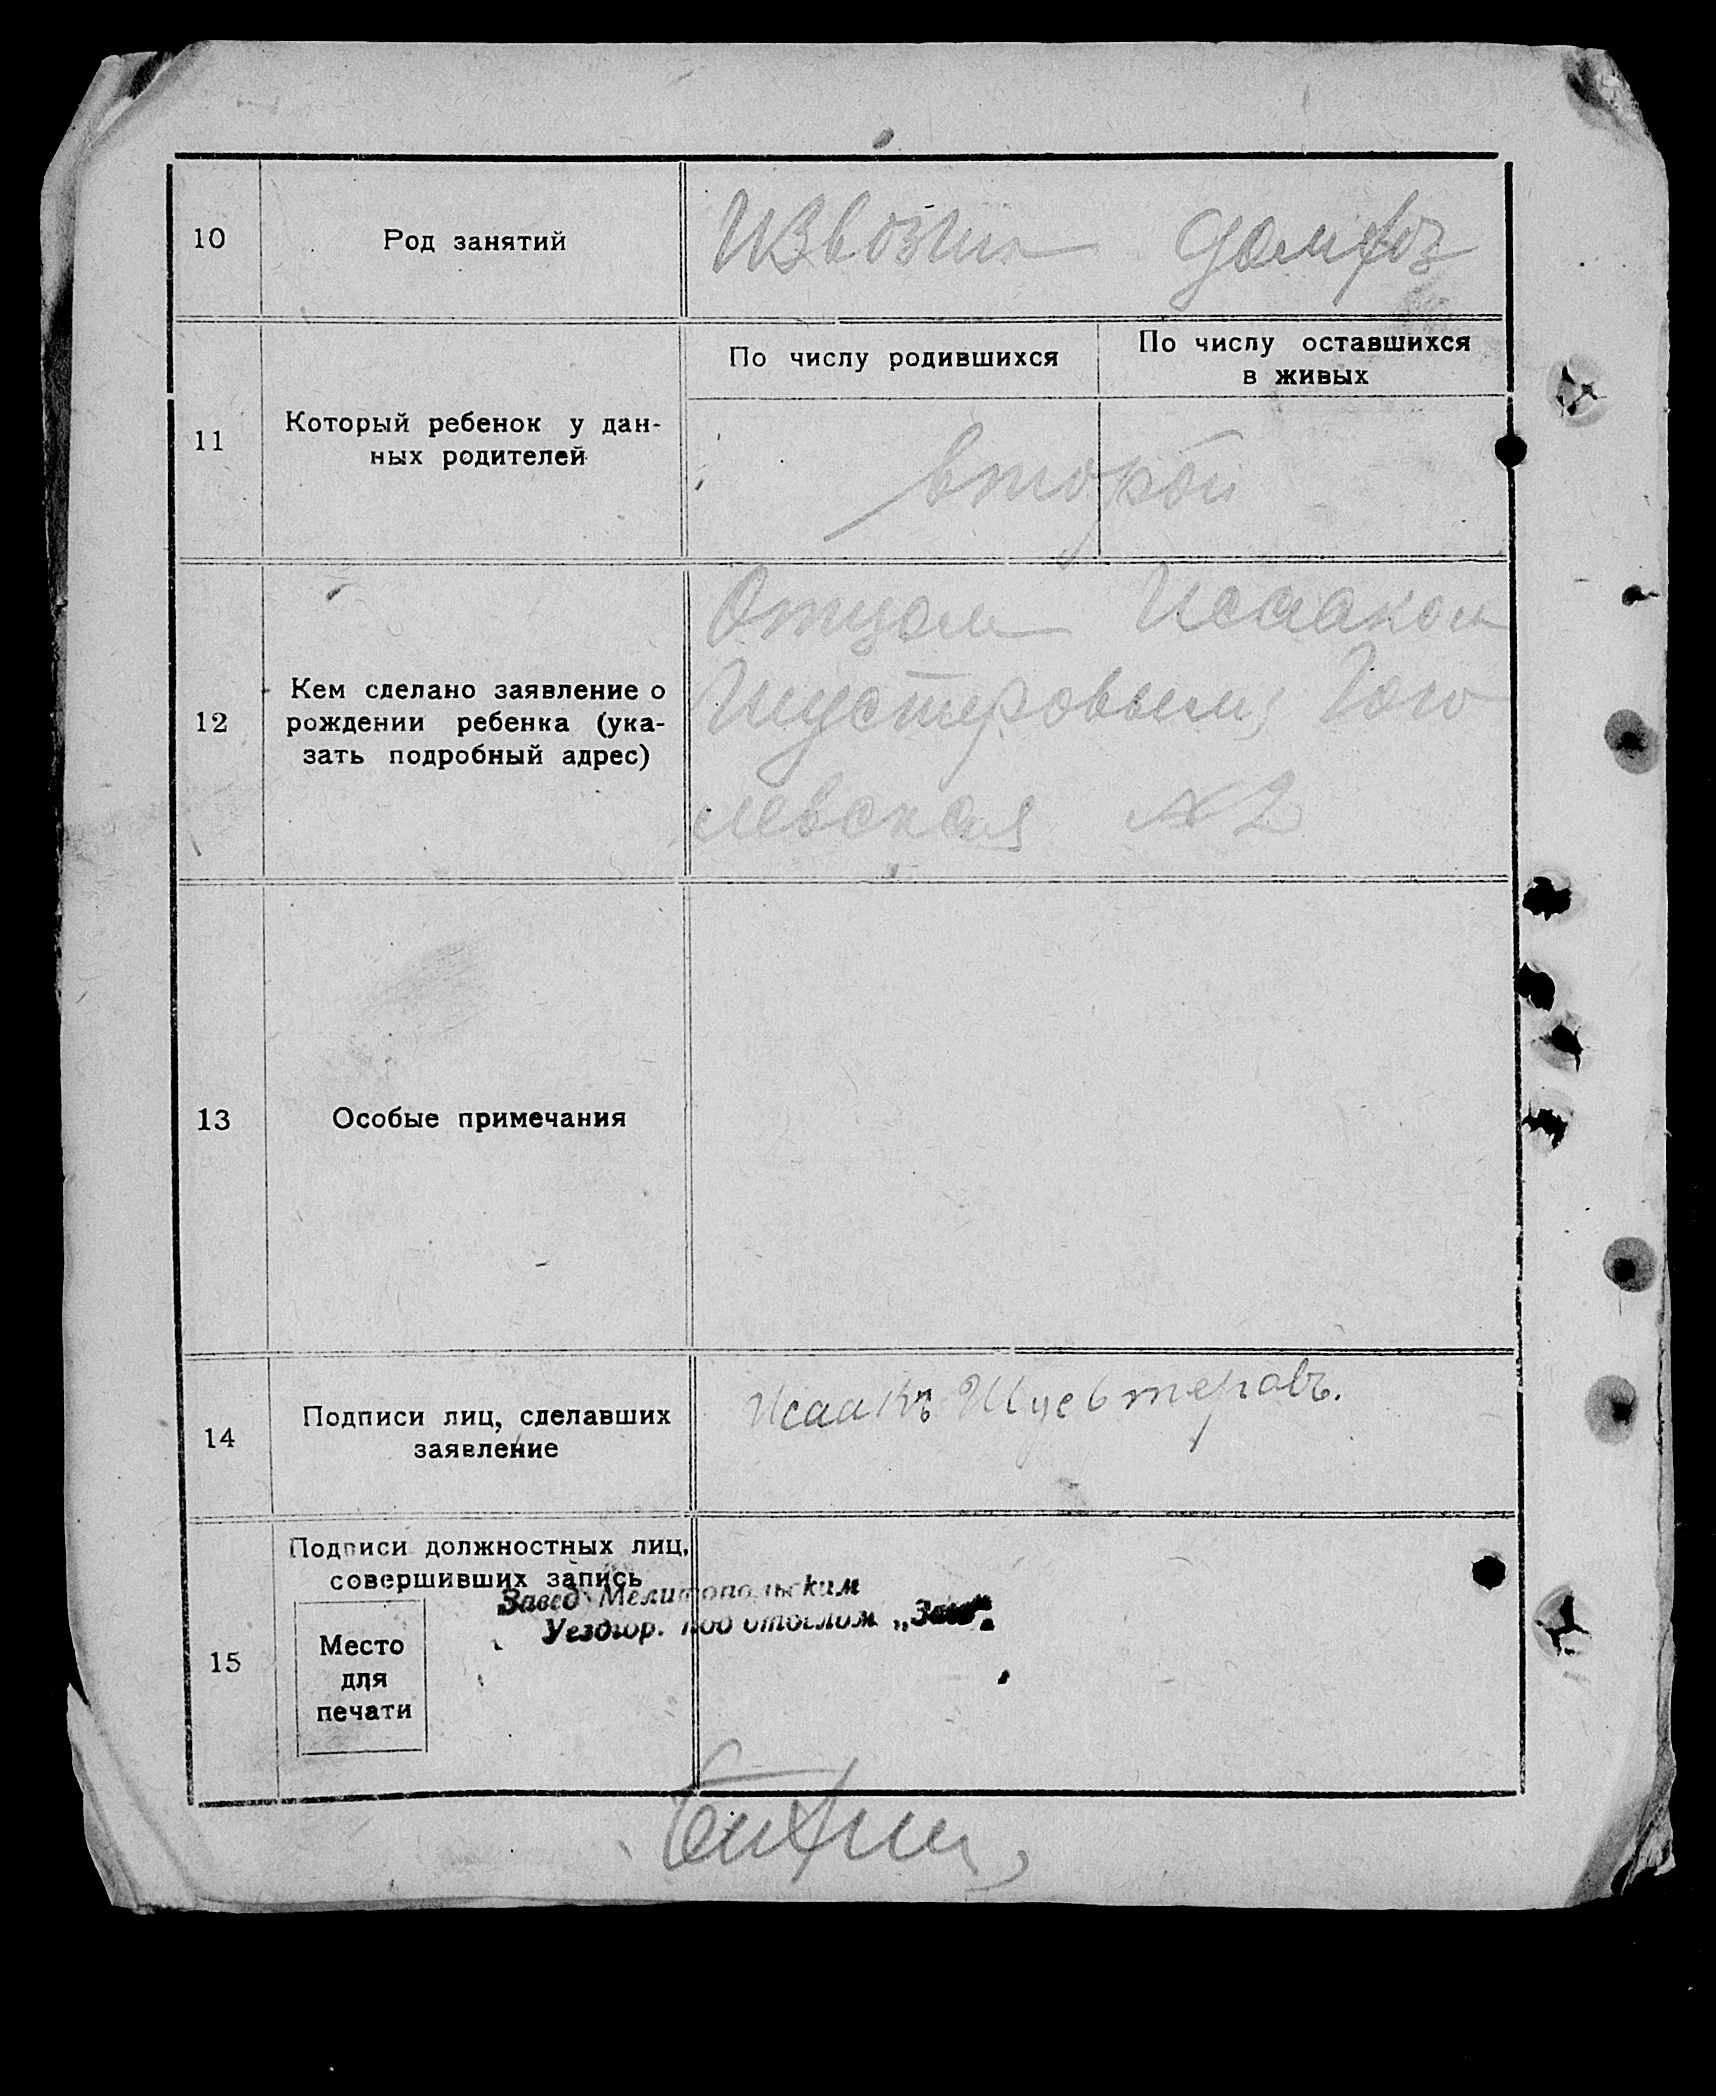 10
Род занятий
Извозчик домхоз
11
Который ребенок у дан-
ных родителей
По числу родившихся
По числу оставшихся
в живых
второй
12
Кем сделано заявление о
рождении ребенка (ука-
зать подробный адрес)
Отцом Исааком
Шустеровым, Гого
левская № 2
13
Особые примечания
14
Подписи лиц, сделавших
заявление
Исаакъ Шустеровъ.
15
Подписи должностных лиц,
совершивших запись
Завед. Мелитопольским
Уездгор. под отделом „Загс“.
Место
для
печати